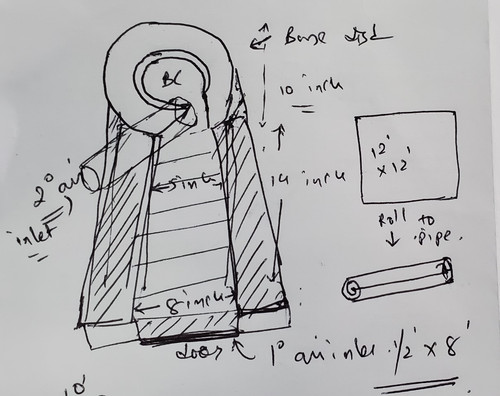 Base disk
BC
10 inch
12'
x 12'
2° air
inlet
5 inch
14 inch
Roll to
pipe.
8 inch
door
1° air inlet 1/2' x 8'
10'